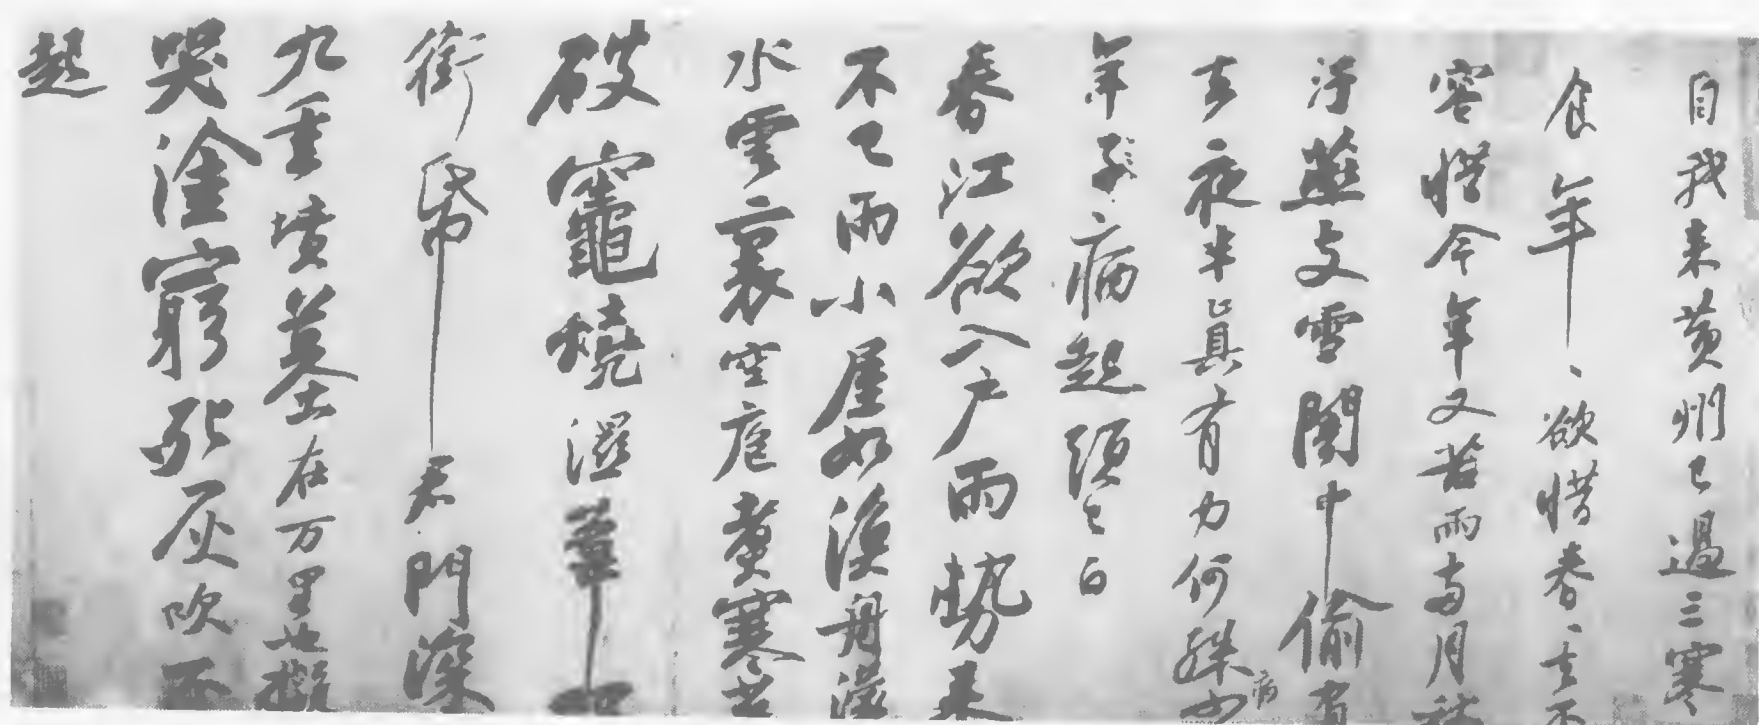 自我来黄州已過三寒
食年、欲惜春、去不
容惜今年又苦雨兩月秋
汙燕支雪闇中偷負
去夜半真有力何殊少
病
年子病起須已白
春江欲入戶雨勢来
不已雨小屋如漁舟濛
水雲裏空庖煮寒菜
破竈燒濕葦
銜帋君門深
九重墳墓在万里也擬
哭塗窮死灰吹不
起